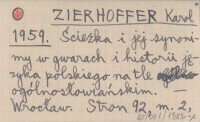 ZIERHOFFER Karol
1959. Ścieżka i jej synoni-
my w gwarach i historii ję-
zyka polskiego na tle
ogólnosłowiańskim. –
Wrocław. Stron 92, m. 2,